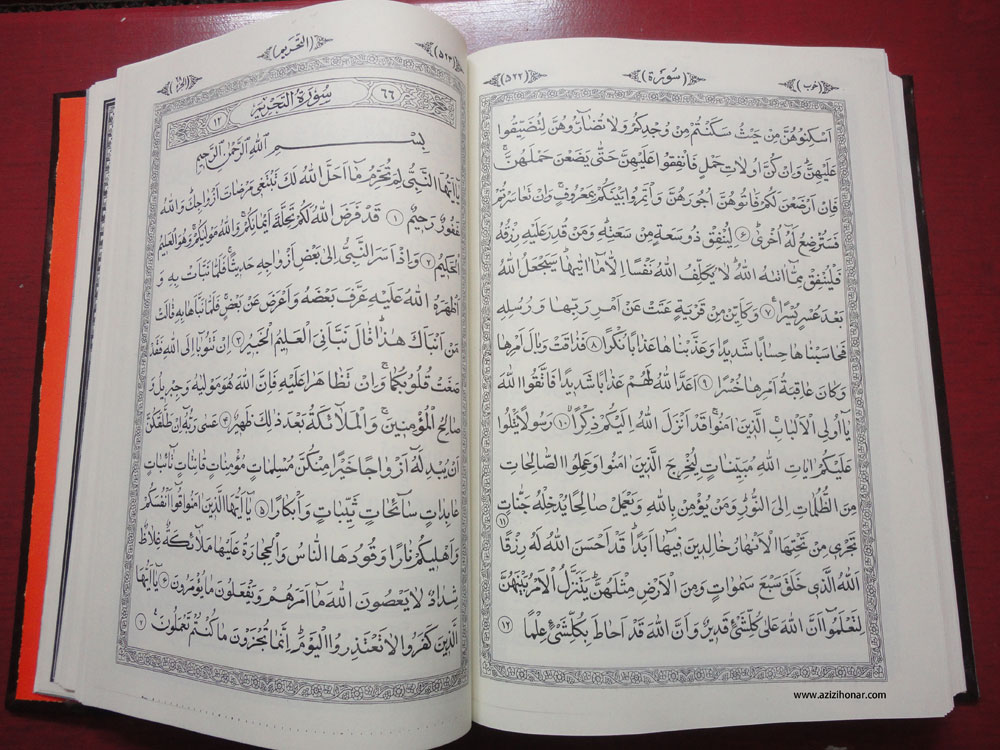 (سُورَة) (٥٢٢)
اَسْكِنُوهُنَّ مِنْ حَيْثُ سَكَنْتُمْ مِنْ وُجْدِكُمْ وَلَا تُضَآرُّوهُنَّ لِتُضَيِّقُوا
عَلَيْهِنَّ وَاِنْ كُنَّ اُولَاتِ حَمْلٍ فَاَنْفِقُوا عَلَيْهِنَّ حَتّٰى يَضَعْنَ حَمْلَهُنَّ
فَاِنْ اَرْضَعْنَ لَكُمْ فَاٰتُوهُنَّ اُجُورَهُنَّ وَأْتَمِرُوا بَيْنَكُمْ بِمَعْرُوفٍ وَاِنْ تَعَاسَرْتُمْ
فَسَتُرْضِعُ لَهُٓ اُخْرٰى ۶ لِيُنْفِقْ ذُو سَعَةٍ مِنْ سَعَتِهٖ وَمَنْ قُدِرَ عَلَيْهِ رِزْقُهُ
فَلْيُنْفِقْ مِمَّٓا اٰتٰيهُ اللّٰهُ لَا يُكَلِّفُ اللّٰهُ نَفْسًا اِلَّا مَٓا اٰتٰيهَا سَيَجْعَلُ اللّٰهُ
بَعْدَ عُسْرٍ يُسْرًا ٧ وَكَاَيِّنْ مِنْ قَرْيَةٍ عَتَتْ عَنْ اَمْرِ رَبِّهَا وَرُسُلِهِ
فَحَاسَبْنَاهَا حِسَابًا شَدِيدًا وَعَذَّبْنَاهَا عَذَابًا نُكْرًا ٨ فَذَاقَتْ وَبَالَ اَمْرِهَا
وَكَانَ عَاقِبَةُ اَمْرِهَا خُسْرًا ٩ اَعَدَّ اللّٰهُ لَهُمْ عَذَابًا شَدِيدًا فَاتَّقُوا اللّٰهَ
يَٓا اُولِي الْاَلْبَابِ الَّذِينَ اٰمَنُوا قَدْ اَنْزَلَ اللّٰهُ اِلَيْكُمْ ذِكْرًا ١٠ رَسُولًا يَتْلُوا
عَلَيْكُمْ اٰيَاتِ اللّٰهِ مُبَيِّنَاتٍ لِيُخْرِجَ الَّذِينَ اٰمَنُوا وَعَمِلُوا الصَّالِحَاتِ
مِنَ الظُّلُمَاتِ اِلَى النُّورِ وَمَنْ يُؤْمِنْ بِاللّٰهِ وَيَعْمَلْ صَالِحًا يُدْخِلْهُ جَنَّاتٍ
تَجْرِي مِنْ تَحْتِهَا الْاَنْهَارُ خَالِدِينَ فِيهَٓا اَبَدًا قَدْ اَحْسَنَ اللّٰهُ لَهُ رِزْقًا ١١
اَللّٰهُ الَّذِي خَلَقَ سَبْعَ سَمٰوَاتٍ وَمِنَ الْاَرْضِ مِثْلَهُنَّ يَتَنَزَّلُ الْاَمْرُ بَيْنَهُنَّ
لِتَعْلَمُٓوا اَنَّ اللّٰهَ عَلٰى كُلِّ شَيْءٍ قَدِيرٌ وَاَنَّ اللّٰهَ قَدْ اَحَاطَ بِكُلِّ شَيْءٍ عِلْمًا ١٢
(التَّحْرِيم)
٦٦ سُورَةُ التَّحْرِيمِ ١٢
بِسْمِ اللّٰهِ الرَّحْمٰنِ الرَّحِيمِ
يَٓا اَيُّهَا النَّبِيُّ لِمَ تُحَرِّمُ مَٓا اَحَلَّ اللّٰهُ لَكَ تَبْتَغِي مَرْضَاتَ اَزْوَاجِكَ وَاللّٰهُ
غَفُورٌ رَحِيمٌ ١ قَدْ فَرَضَ اللّٰهُ لَكُمْ تَحِلَّةَ اَيْمَانِكُمْ وَاللّٰهُ مَوْلٰيكُمْ وَهُوَ الْعَلِيمُ
الْحَكِيمُ ٢ وَاِذْ اَسَرَّ النَّبِيُّ اِلٰى بَعْضِ اَزْوَاجِهِ حَدِيثًا فَلَمَّا نَبَّاَتْ بِهِ وَ
اَظْهَرَهُ اللّٰهُ عَلَيْهِ عَرَّفَ بَعْضَهُ وَاَعْرَضَ عَنْ بَعْضٍ فَلَمَّا نَبَّاَهَا بِهِ قَالَتْ
مَنْ اَنْبَاَكَ هٰذَا قَالَ نَبَّاَنِيَ الْعَلِيمُ الْخَبِيرُ ٣ اِنْ تَتُوبَٓا اِلَى اللّٰهِ فَقَدْ
صَغَتْ قُلُوبُكُمَا وَاِنْ تَظَاهَرَا عَلَيْهِ فَاِنَّ اللّٰهَ هُوَ مَوْلٰيهُ وَجِبْرِيلُ وَ
صَالِحُ الْمُؤْمِنِينَ وَالْمَلٰٓئِكَةُ بَعْدَ ذٰلِكَ ظَهِيرٌ ۴ عَسٰى رَبُّهُٓ اِنْ طَلَّقَكُنَّ
اَنْ يُبْدِلَهُٓ اَزْوَاجًا خَيْرًا مِنْكُنَّ مُسْلِمَاتٍ مُؤْمِنَاتٍ قَانِتَاتٍ تَٓائِبَاتٍ
عَابِدَاتٍ سَٓائِحَاتٍ ثَيِّبَاتٍ وَاَبْكَارًا ۵ يَٓا اَيُّهَا الَّذِينَ اٰمَنُوا قُٓوا اَنْفُسَكُمْ
وَاَهْلِيكُمْ نَارًا وَقُودُهَا النَّاسُ وَالْحِجَارَةُ عَلَيْهَا مَلٰٓئِكَةٌ غِلَاظٌ
شِدَادٌ لَا يَعْصُونَ اللّٰهَ مَٓا اَمَرَهُمْ وَيَفْعَلُونَ مَا يُؤْمَرُونَ ۶ يَٓا اَيُّهَا
الَّذِينَ كَفَرُوا لَا تَعْتَذِرُوا الْيَوْمَ اِنَّمَا تُجْزَوْنَ مَا كُنْتُمْ تَعْمَلُونَ ٧
www.azizihonar.com